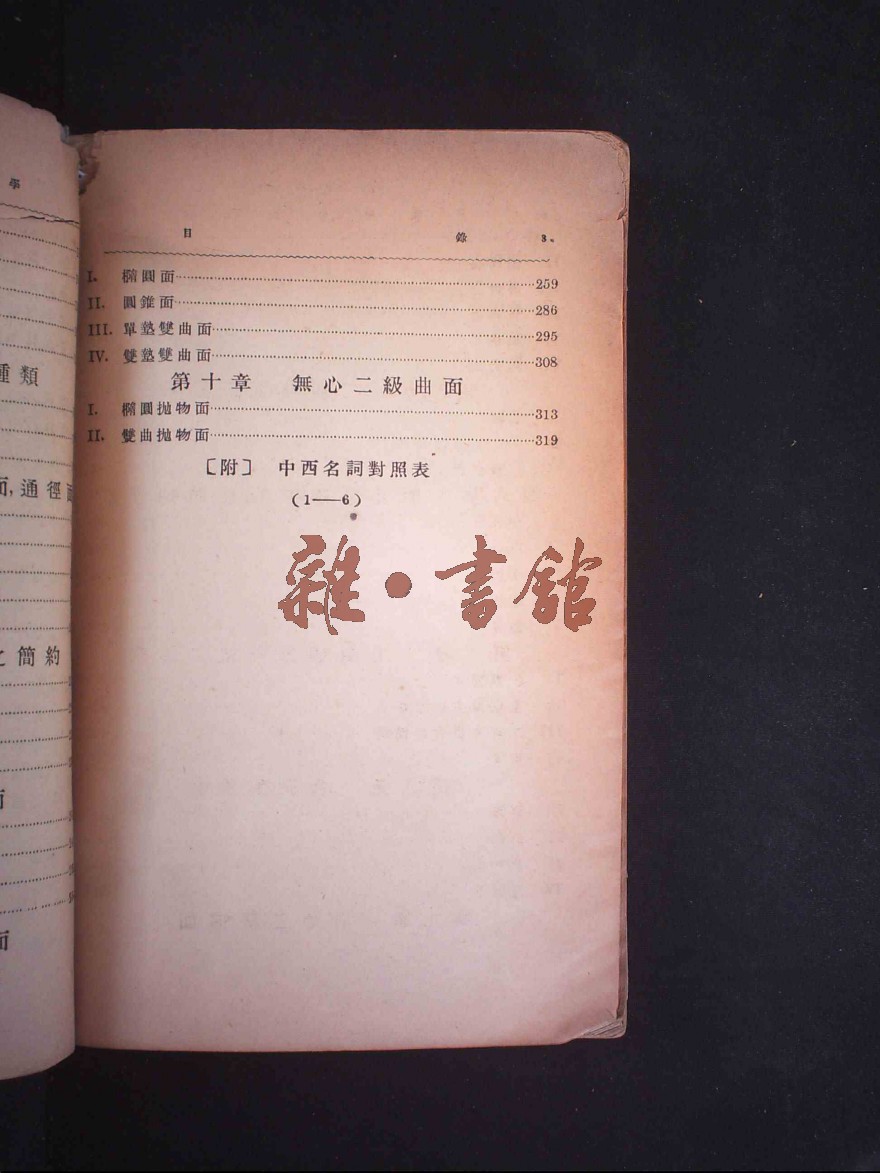 學
種類
面,通徑面
之簡約
面
面
目 錄 3
I. 橢圓面 259
II. 圓錐面 286
III. 單墊雙曲面 295
IV. 雙墊雙曲面 308
第十章 無心二級曲面
I. 橢圓拋物面 313
II. 雙曲拋物面 319
〔附〕 中西名詞對照表
(1——6)
雜・書館